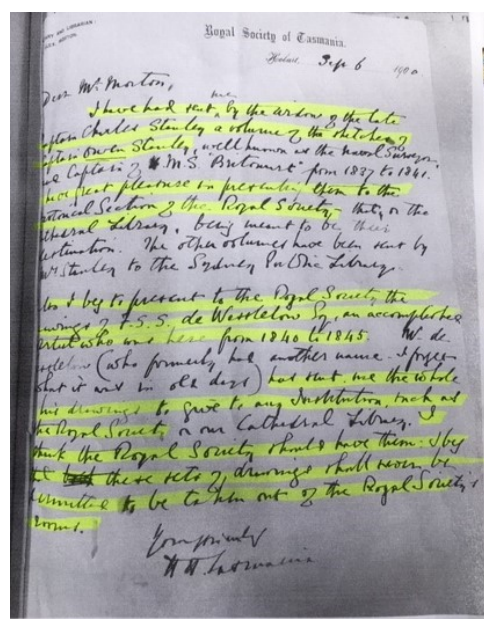 Royal Society of Tasmania.
Hobart, Sep 6 1900
Dear Mr. Morton,
me
I have had sent, by the widow of the late
Captain Charles Stanley a volume of the sketches of
Captain Owen Stanley, well known as the Naval Surveyor,
and Captain of H.M.S. "Britomart" from 1837 to 1841.
have great pleasure in presenting them to the
Section of the Royal Society, that, or the
Cathedral Library, being meant to be their
destination. The other volumes have been sent by
Mrs Stanley to the Sydney Public Library.
Also I beg to present to the Royal Society the
drawings of F.S.S. de Wesselow Esq, an accomplished
artist who was here from 1840 to 1845. Mr. de
Wesselow (who formerly had another name. I forget
what it was in old days) has sent me the whole
his drawings to give to any Institution, such as
the Royal Society or our Cathedral Library. I
think the Royal Society should have them. I beg
that these sets of drawings shall never be
permitted to be taken out of the Royal Society's
rooms.
Yours sincerely
H. H. Tasmania